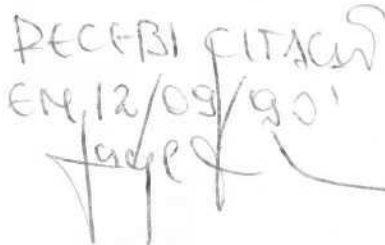 RECEBI CITAÇÃO
EM 12/09/90